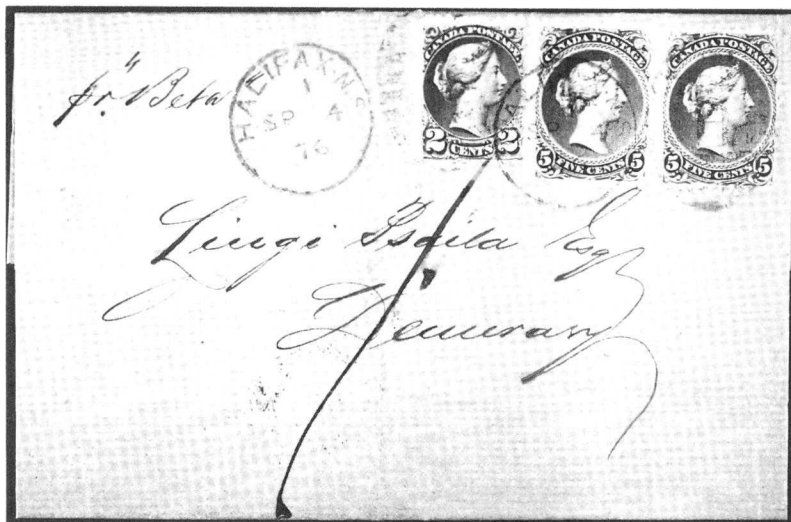 pr. "Beta
HALIFAX N.S
1
SP 4
76
CANADA POSTAGE
2 CENTS 2
CANADA POSTAGE
5 FIVE CENTS 5
CANADA POSTAGE
5 FIVE CENTS 5
Psaila Esq
Demerary